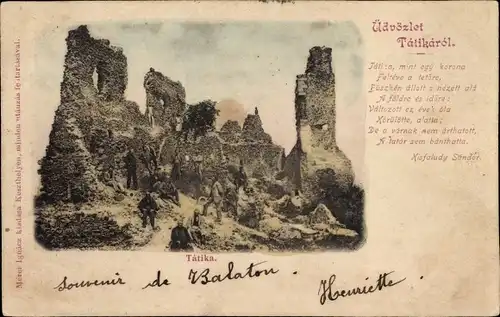 Üdvözlet
Tátikáról.
Tátika, mint egy korona
Feltéve a tetőre,
Büszkén állott s nézett alá
A földre és időre:
Változott ez évek óta
Körülötte, alatta;
De a várnak nem árthatott,
A tatár sem bánthatta.
Kisfaludy Sándor.
Mérei Ignácz kiadása Keszthelyen, minden utánzás fentartásával.
Tátika.
Souvenir de Balaton.
Henriette